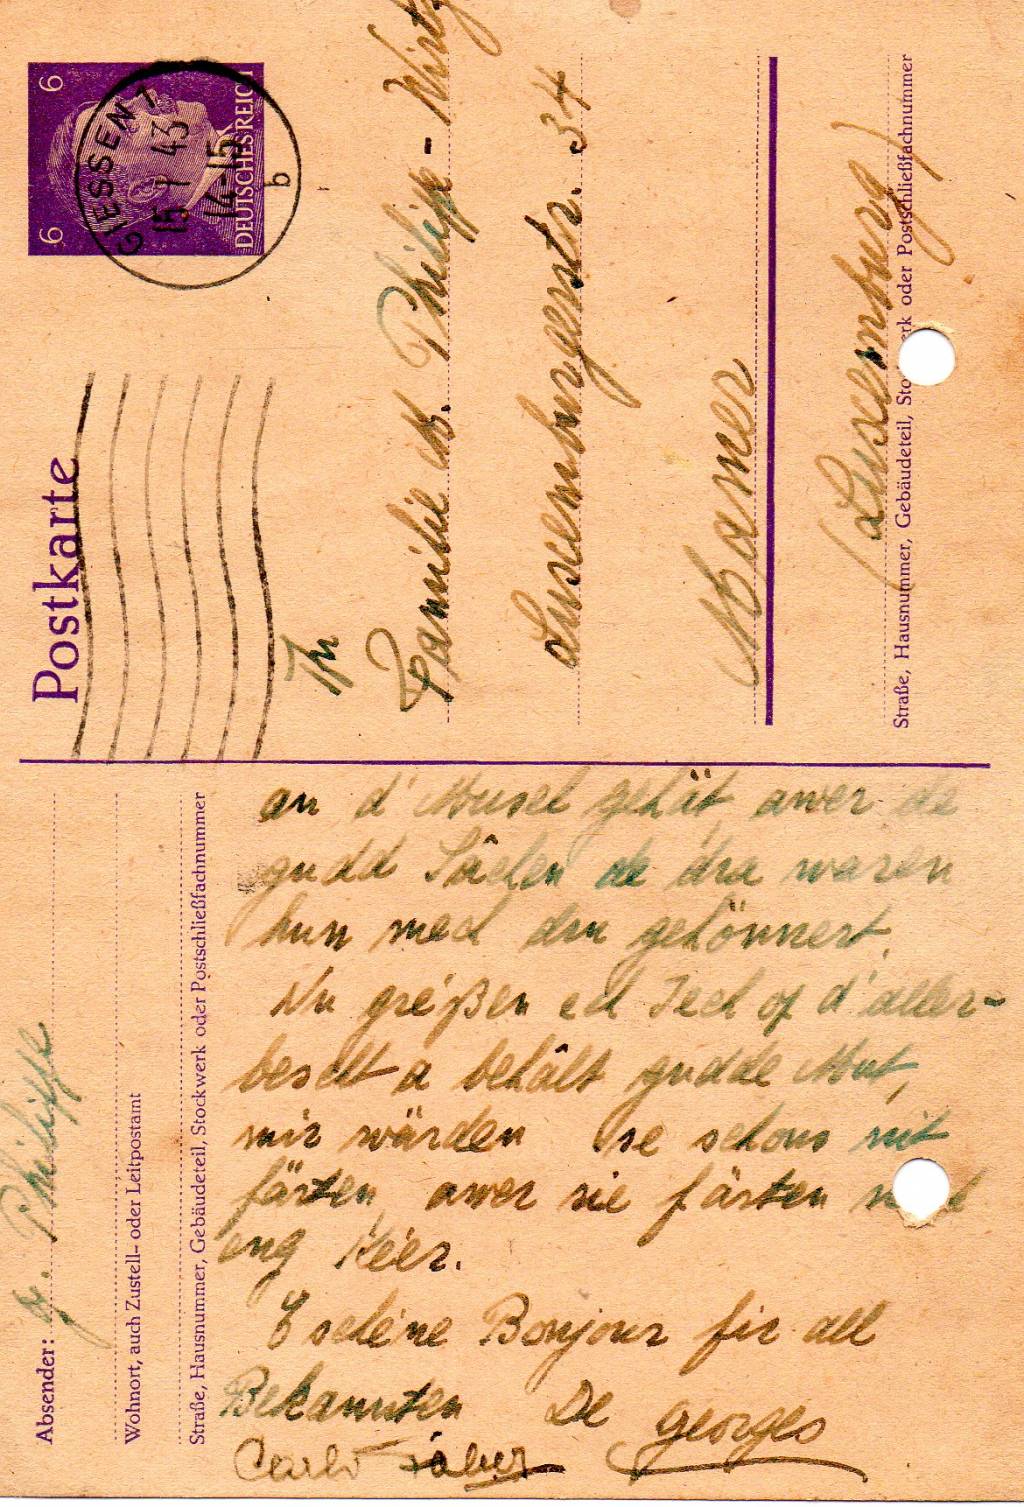 Postkarte
6 6
DEUTSCHES REICH
GIESSEN 1
15 1 43
14-15
b
An
Familie M. Philippe - Wirtz
Luxemburgerstr. 34
Mamer
(Luxemburg)
Straße, Hausnummer, Gebäudeteil, Stockwerk oder Postschließfachnummer
Absender: G. Philippe
Wohnort, auch Zustell- oder Leitpostamt
Straße, Hausnummer, Gebäudeteil, Stockwerk oder Postschließfachnummer
an d'Musel gehät, awer de
gudd Sâchen de dra waren
hun mech dru gehönnert.
Nu gréßen ech Iech op d'aller-
bescht a behâlt gudde Mut,
mir wärden se schons nit
färten, awer sie färten
eng Kéer.
E schéne Bonjour fir all
Bekannten De Georges
Carlo Faber